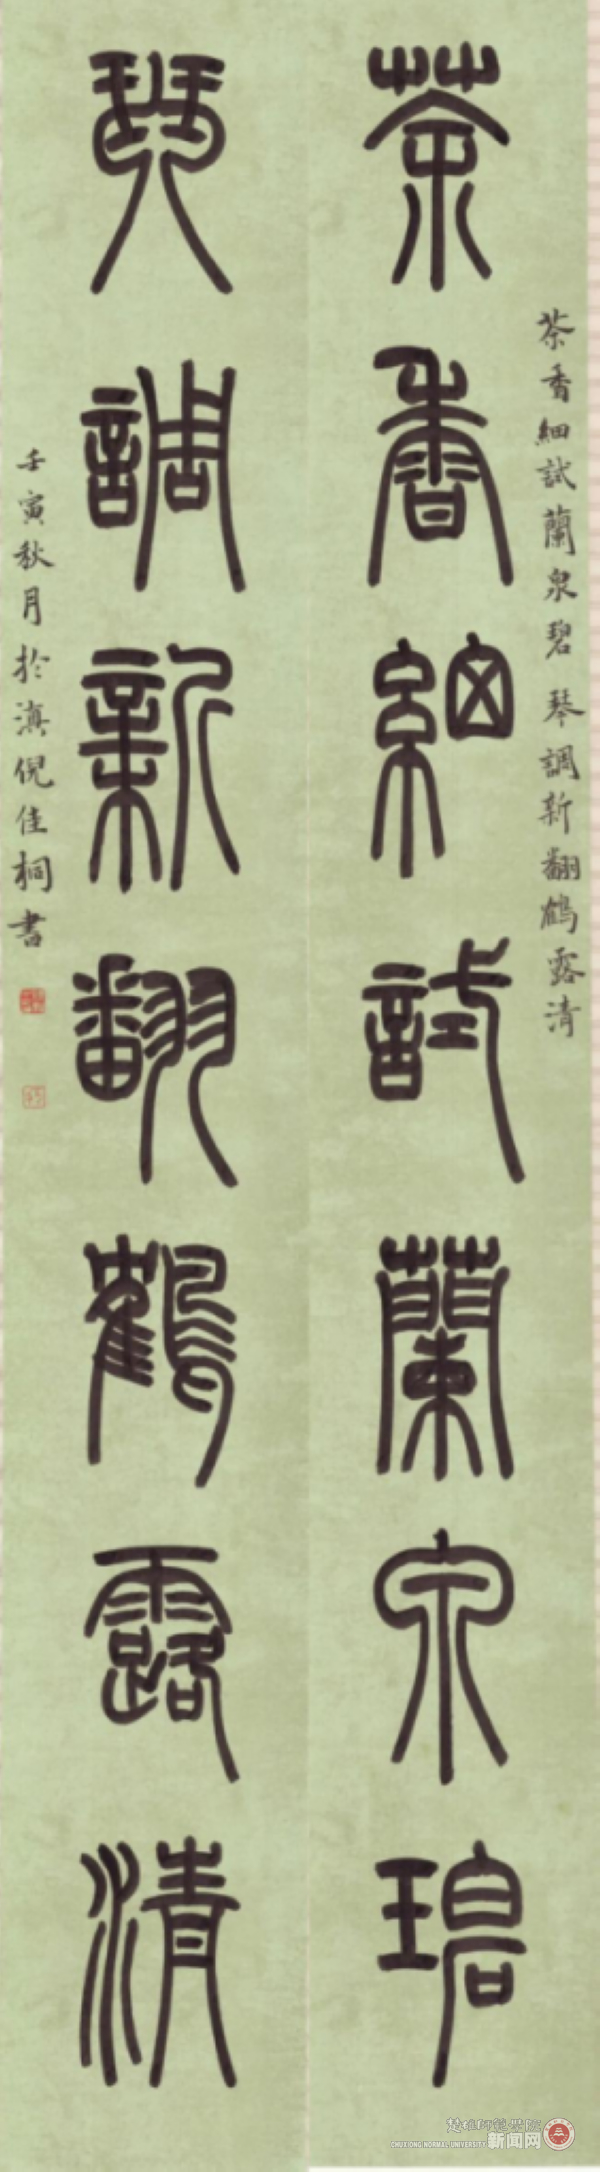 茶香細試蘭泉碧
茶香細試蘭泉碧 琴調新翻鶴露清
琴調新翻鶴露清
壬寅秋月於滇倪佳桐書
楚雄師範學院
CHUXIONG NORMAL UNIVERSITY 新闻网